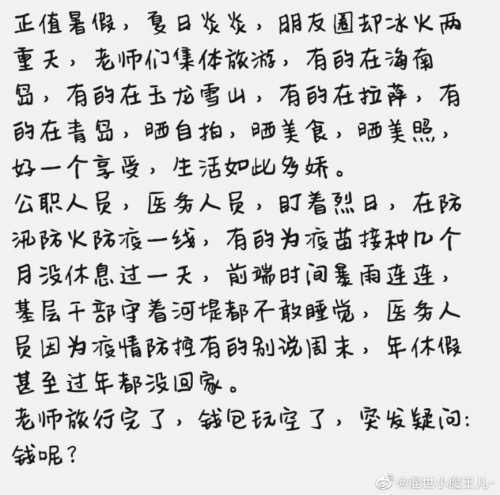 正值暑假，夏日炎炎，朋友圈却冰火两
重天，老师们集体旅游，有的在海南
岛，有的在玉龙雪山，有的在拉萨，有
的在青岛，晒自拍，晒美食，晒美照，
好一个享受，生活如此多娇。
公职人员，医务人员，盯着烈日，在防
汛防火防疫一线，有的为疫苗接种几个
月没休息过一天，前端时间暴雨连连，
基层干部守着河堤都不敢睡觉，医务人
员因为疫情防控有的别说周末，年休假
甚至过年都没回家。
老师旅行完了，钱包玩空了，突发疑问：
钱呢？